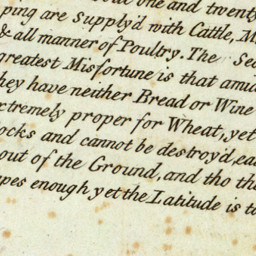 one and twenty
ping are Supply'd with Cattle, M
& all manner of Poultry. The Sea
greatest Misfortune is that amid
they have neither Bread or Wine
xtremely proper for Wheat, yet
ocks and cannot be destroy'd, ea
out of the Ground, and tho the
apes enough yet the Latitude is to